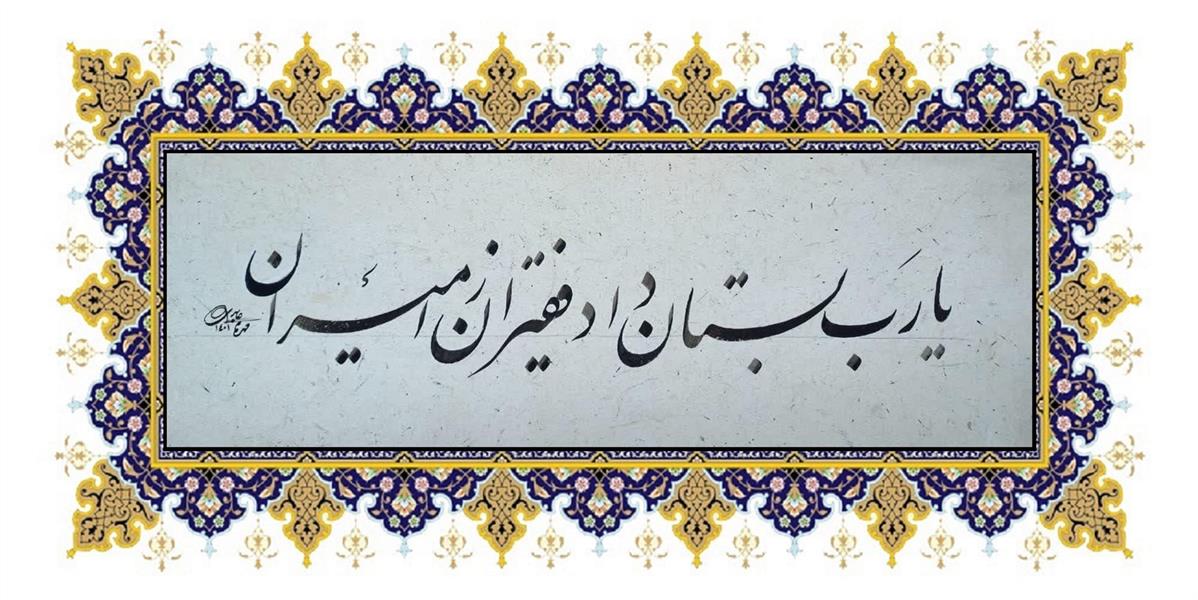 یا رَب بستان داد فقیران از امیران
۱۴۰۱